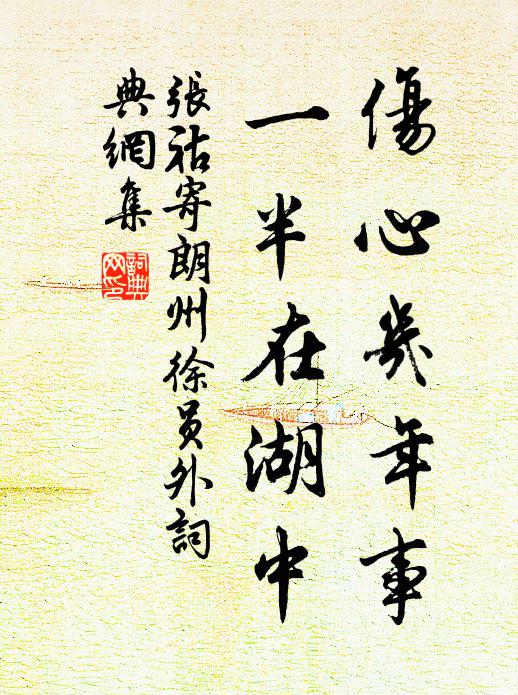 傷心幾年事
一半在湖中
張祜寄朗州徐員外詞
典網集
詞典
网印